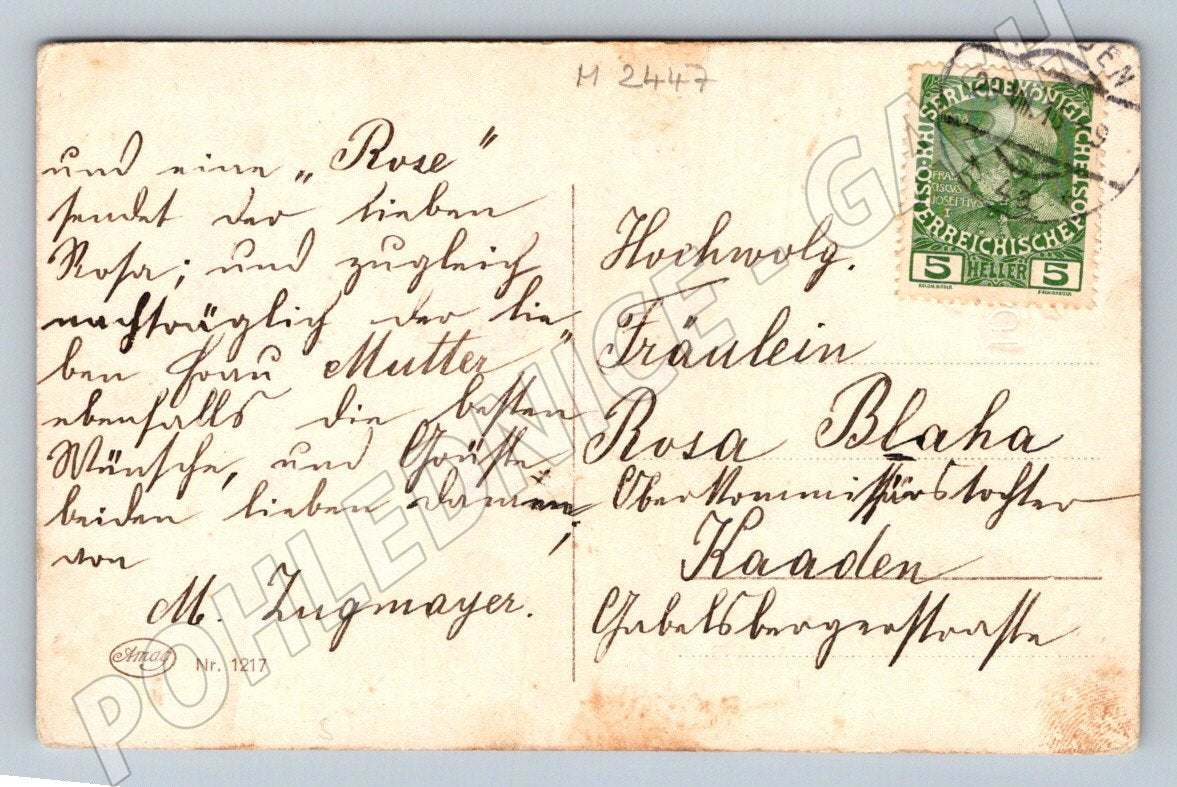 M 2447
und eine „Rose“
sendet der lieben
Rosa; und zugleich
nachträglich der lie-
ben Frau „Mutter“
ebenfalls die besten
Wünsche, und Grüße
beiden lieben Damen,
von
M. Zugmayer.
Amag
Nr. 1217
KAISERLICHE KÖNIGLICHE
ÖSTERREICHISCHE POST
FRAN
CISCVS
IOSEPHVS
I
5 HELLER 5
Hochwolg.
Fräulein
Rosa Blaha
Oberkommissärstochter
Kaaden
Gabelsbergerstraße
POHLEDNICE.GASH